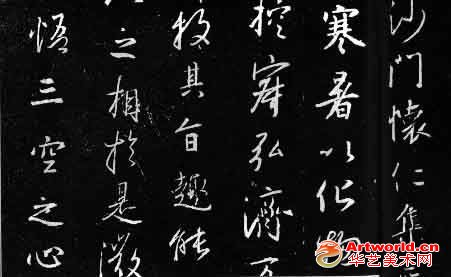 沙門懷仁集
寒暑以化物
控寂弘濟万
投其旨趣能
之相於是微
悟三空之心
Artworld.cn
华艺美术网